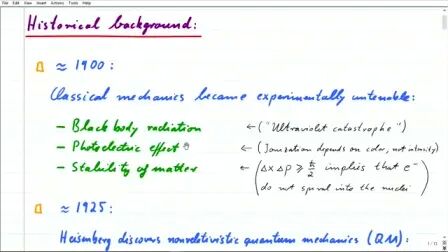 Historical background:
≈ 1900:
Classical mechanics became experimentally untenable:
– Black body radiation ← ("Ultraviolet catastrophe")
– Photoelectric effect ← (Ionization depends on color, not intensity)
– Stability of matter ← (Δx Δp ≥ ħ/2 implies that e⁻
do not spiral into the nuclei)
≈ 1925:
Heisenberg discovers nonrelativistic quantum mechanics (QM):